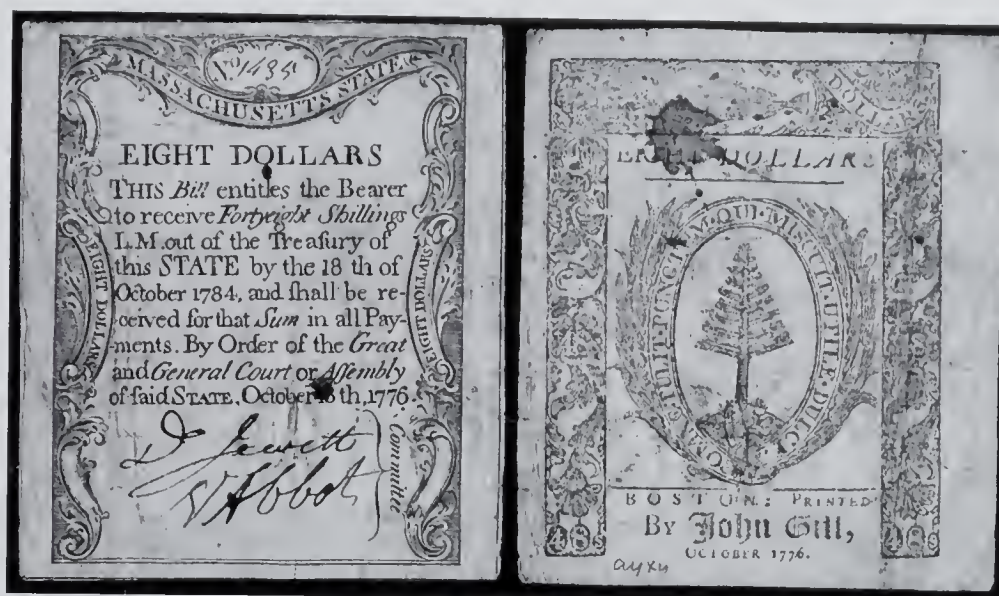 No 1435
MASSACHUSETTS STATE
EIGHT DOLLARS
THIS Bill entitles the Bearer
to receive Fortyeight Shillings
L.M. out of the Treaſury of
this STATE by the 18 th of
October 1784, and ſhall be re-
ceived for that Sum in all Pay-
ments. By Order of the Great
and General Court or Aſſembly
of ſaid STATE, October 18 th, 1776.
EIGHT DOLLARS
EIGHT DOLLARS
D Jewett
Abbot
Committe
DOLLARS
EIGHT DOLLARS
OMNE·TULIT·PUNCTUM·QUI·MISCUIT·UTILE·DULCI
BOSTON: PRINTED
By John Gill,
OCTOBER 1776.
48s
48s